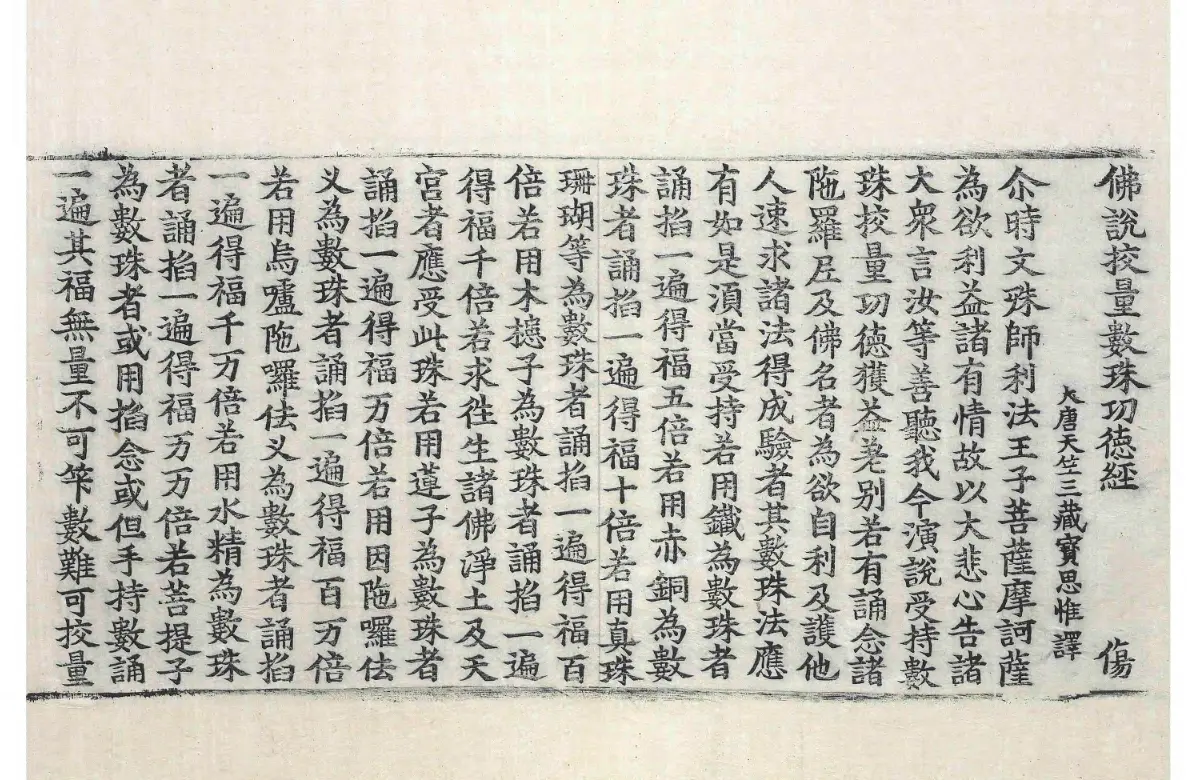 佛說挍量數珠功德經 傷
大唐天竺三藏寶思惟譯
尒時文殊師利法王子菩薩摩訶薩
為欲利益諸有情故以大悲心告諸
大衆言汝等善聽我今演說受持數
珠挍量功德獲益差別若有誦念諸
陁羅尼及佛名者為欲自利及護他
人速求諸法得成驗者其數珠法應
有如是湏當受持若用鐵為數珠者
誦掐一遍得福五倍若用赤銅為數
珠者誦掐一遍得福十倍若用真珠
珊瑚等為數珠者誦掐一遍得福百
倍若用木槵子為數珠者誦掐一遍
得福千倍若求徃生諸佛淨土及天
宮者應受此珠若用蓮子為數珠者
誦掐一遍得福万倍若用因陁囉佉
叉為數珠者誦掐一遍得福百万倍
若用烏嚧陁囉佉叉為數珠者誦掐
一遍得福千万倍若用水精為數珠
者誦掐一遍得福万万倍若菩提子
為數珠者或用掐念或但手持數誦
一遍其福無量不可筭數難可挍量